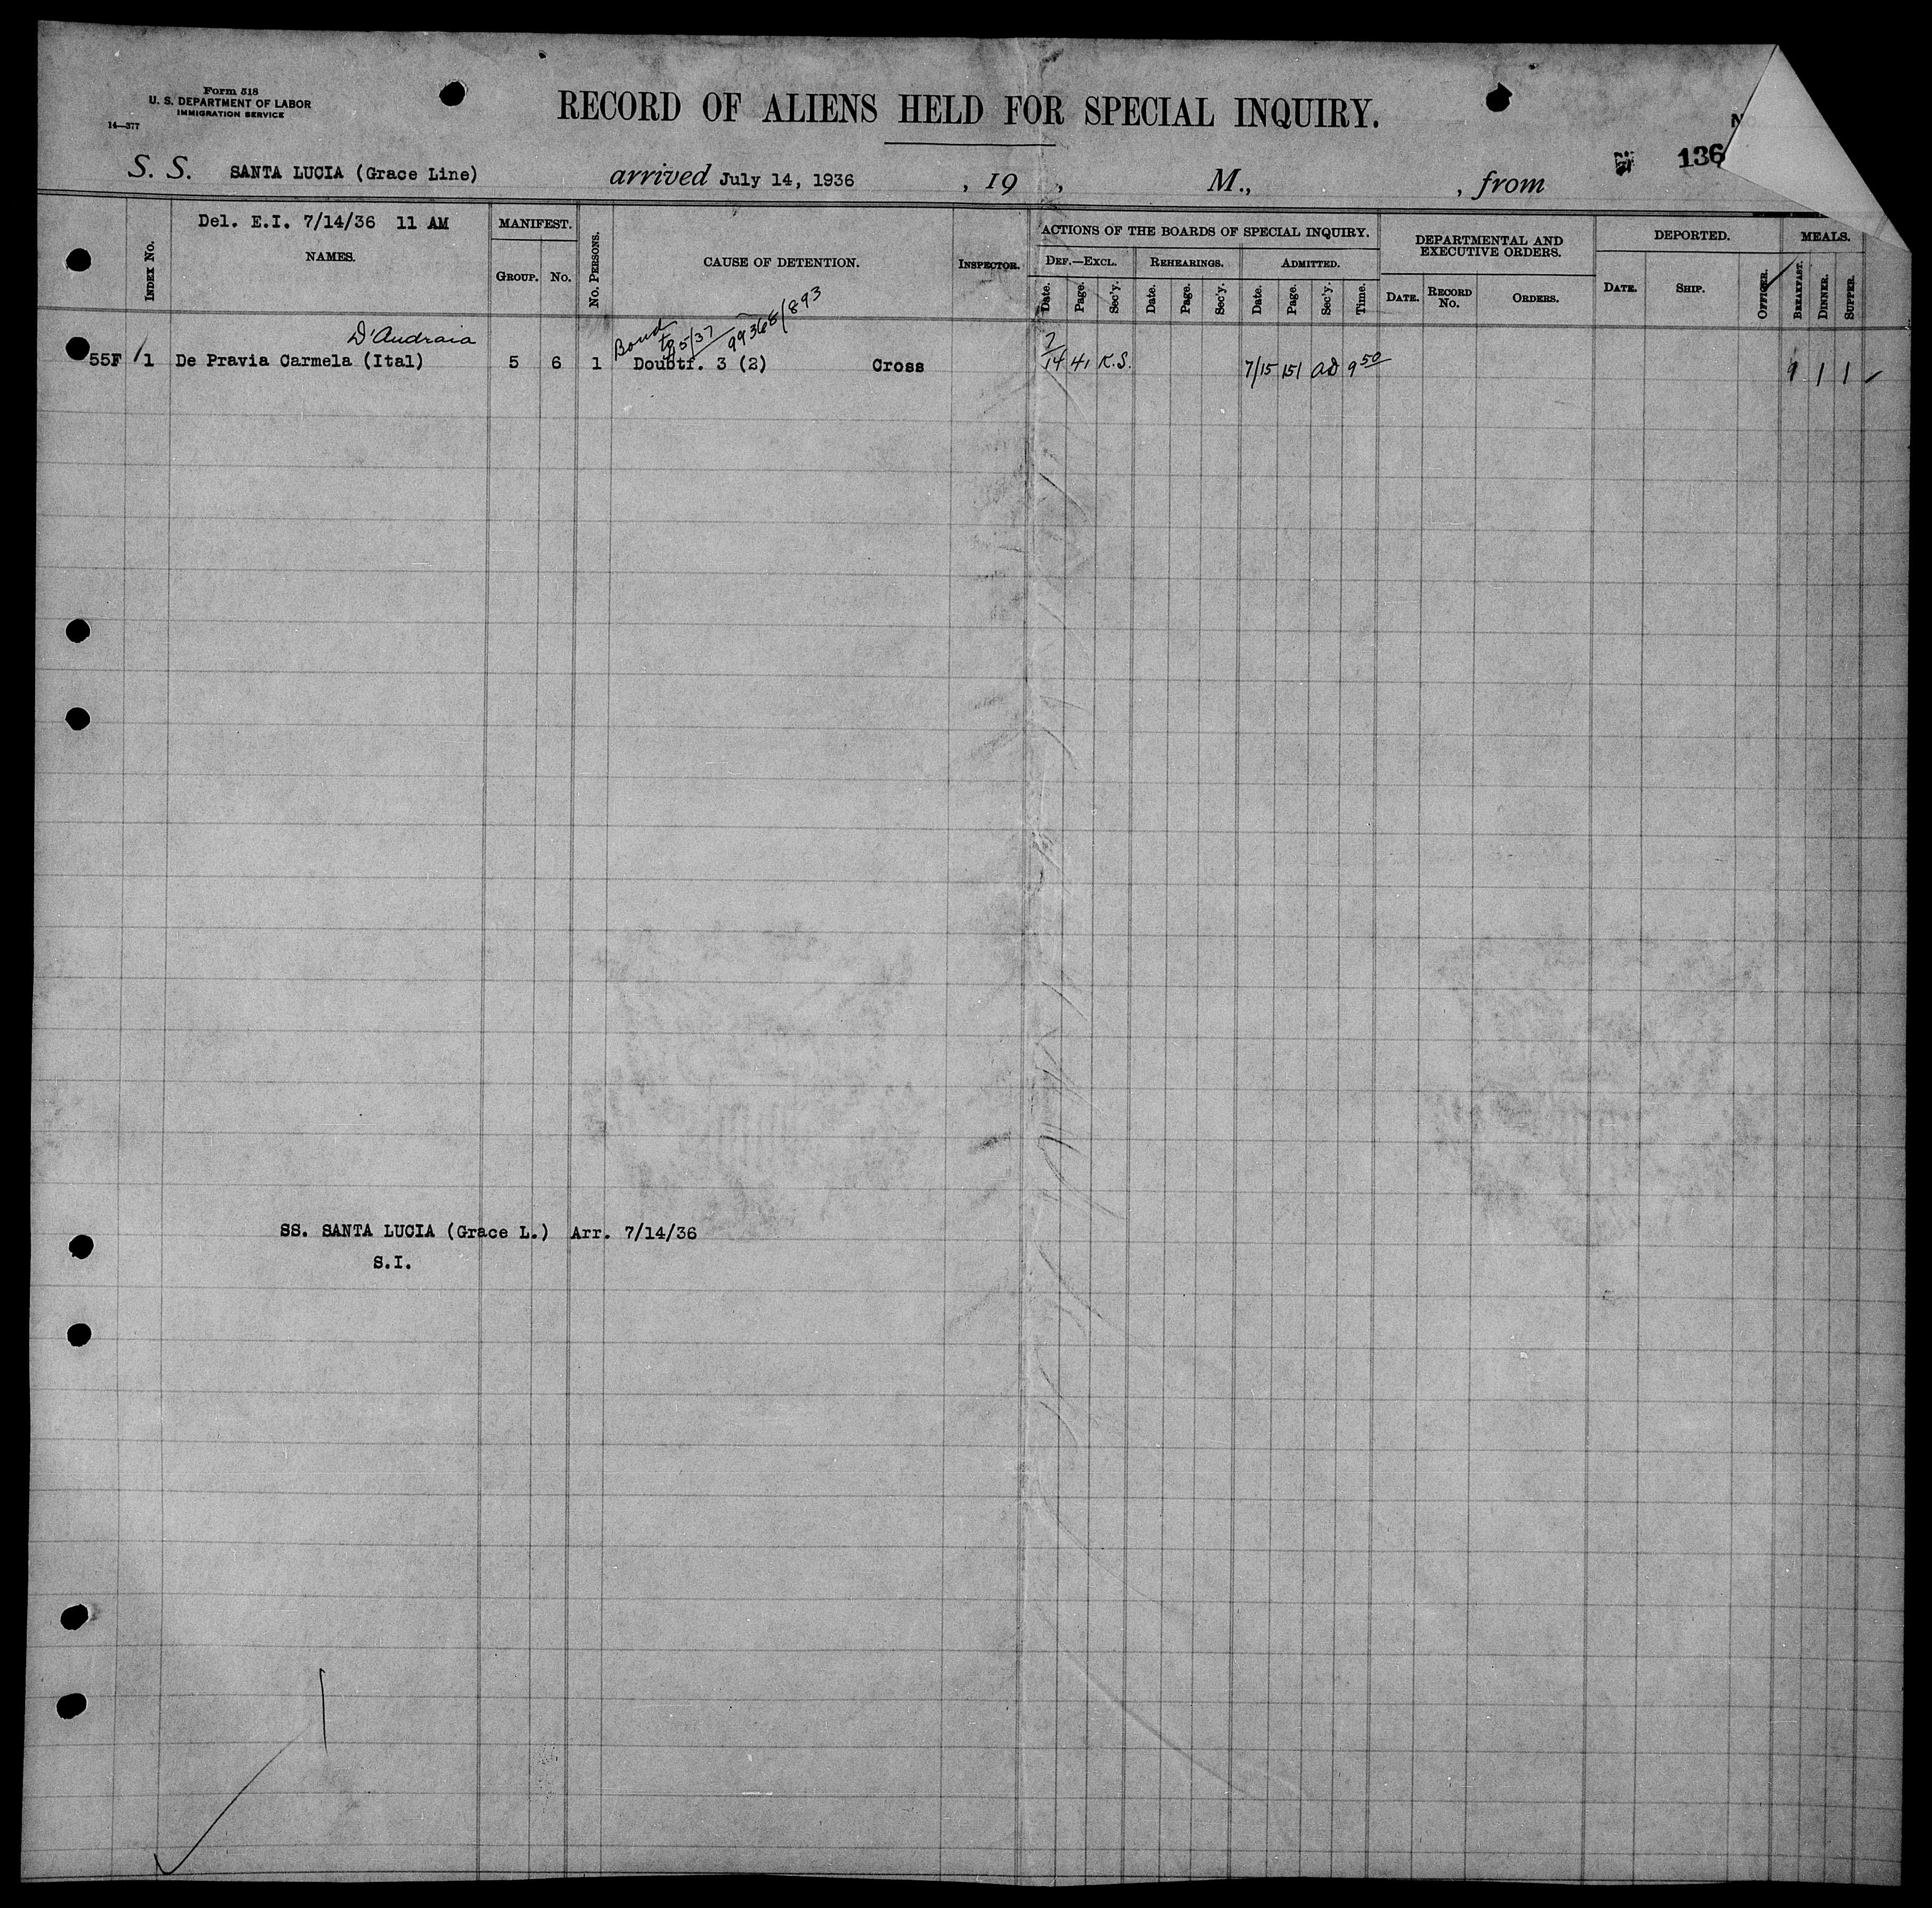 Form 518
U. S. DEPARTMENT OF LABOR
IMMIGRATION SERVICE
14—377
RECORD OF ALIENS HELD FOR SPECIAL INQUIRY.
136
S. S. SANTA LUCIA (Grace Line) arrived July 14, 1936 , 19 , M., , from
Del. E.I. 7/14/36 11 AM
INDEX No.
NAMES.
MANIFEST.
GROUP. No.
No. PERSONS.
CAUSE OF DETENTION.
INSPECTOR.
ACTIONS OF THE BOARDS OF SPECIAL INQUIRY.
DEF.—EXCL. REHEARINGS. ADMITTED.
Date. Page. Sec'y. Date. Page. Sec'y. Date. Page. Sec'y. Time.
DEPARTMENTAL AND
EXECUTIVE ORDERS.
DATE. RECORD No. ORDERS.
DEPORTED.
DATE. SHIP. OFFICER.
MEALS.
BREAKFAST. DINNER. SUPPER.
D'Andraia
Bond
99368/893
55F 1 De Pravia Carmela (Ital) 5 6 1 Doubtf. 3 (2) Cross 7/14 41 K.S. 7/15 151 9 50 1 1
SS. SANTA LUCIA (Grace L.) Arr. 7/14/36
S.I.